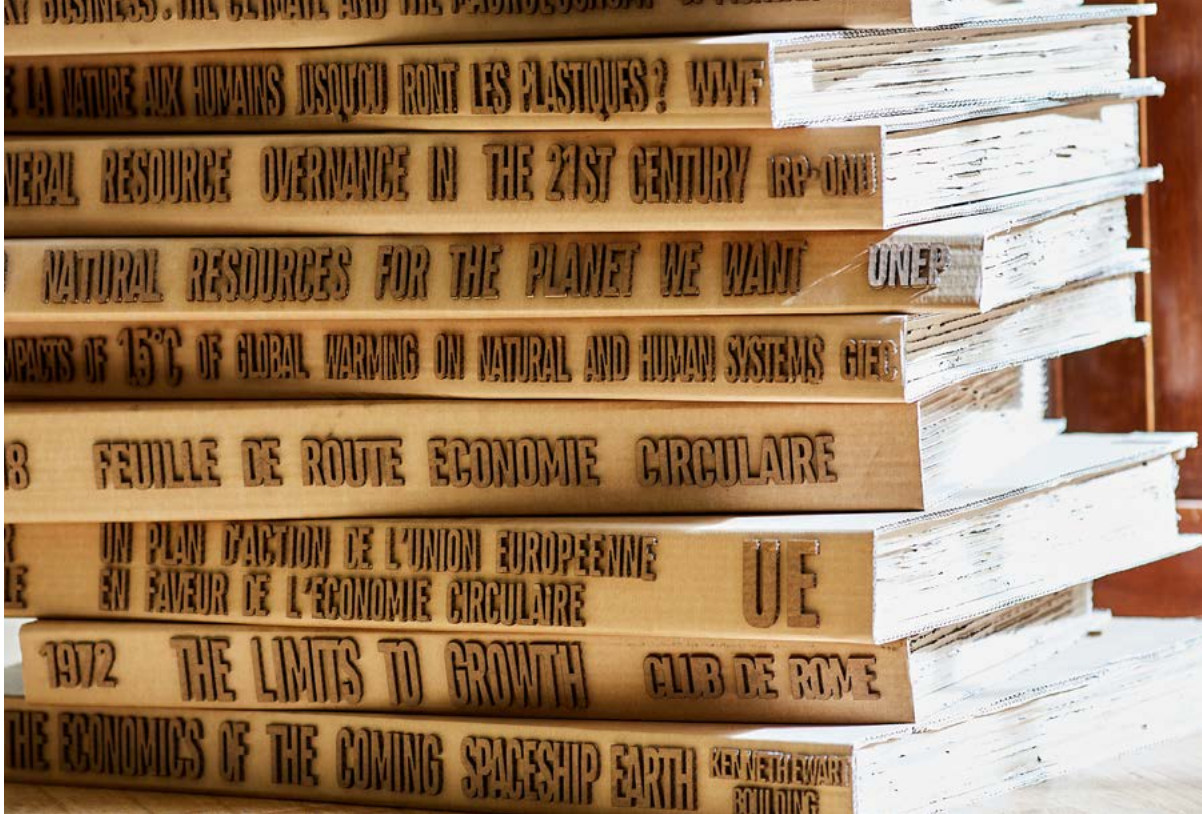 BUSINESS: THE CLIMATE AND THE MACROECONOMY
LA NATURE AUX HUMAINS JUSQU'OU IRONT LES PLASTIQUES ? WWF
RESOURCE OVERNANCE IN THE 21ST CENTURY IRP-ONU
NATURAL RESOURCES FOR THE PLANET WE WANT UNEP
OF 1.5°C OF GLOBAL WARMING ON NATURAL AND HUMAN SYSTEMS GIEC
8 FEUILLE DE ROUTE ECONOMIE CIRCULAIRE
UN PLAN D'ACTION DE L'UNION EUROPEENNE
EN FAVEUR DE L'ECONOMIE CIRCULAIRE
UE
1972 THE LIMITS TO GROWTH CLUB DE ROME
THE ECONOMICS OF THE COMING SPACESHIP EARTH KENNETH EWART
BOULDING